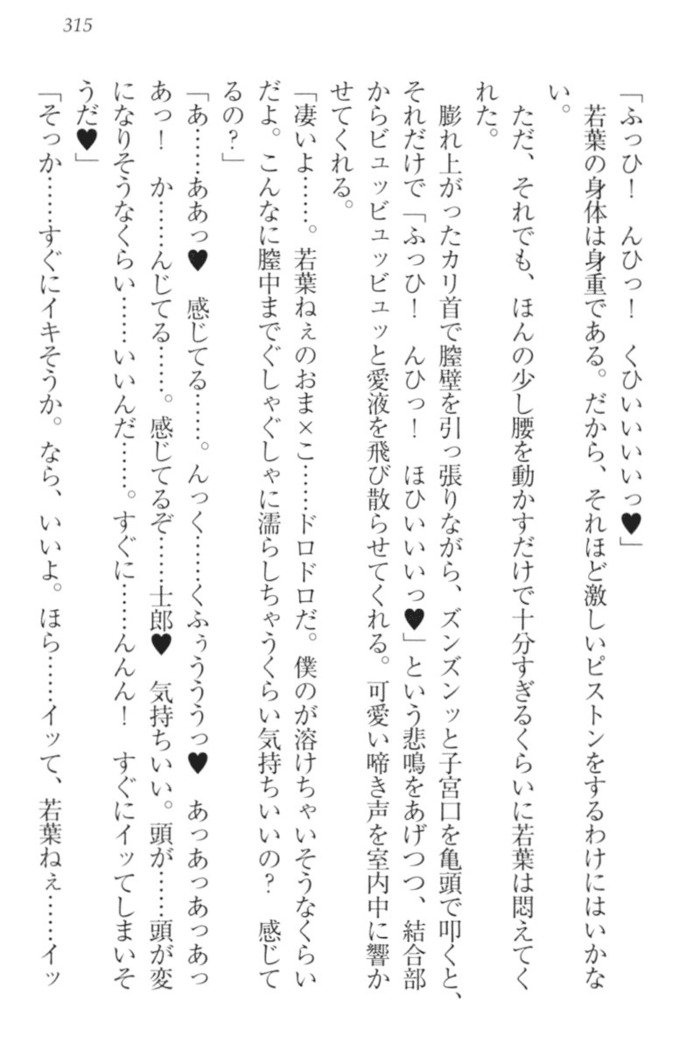 315
「ふっひ！　んひっ！　くひいいいいっ♥」
若葉の身体は身重である。だから、それほど激しいピストンをするわけにはいかな
い。
ただ、それでも、ほんの少し腰を動かすだけで十分すぎるくらいに若葉は悶えてく
れた。
膨れ上がったカリ首で膣壁を引っ張りながら、ズンズンッと子宮口を亀頭で叩くと、
それだけで「ふっひ！　んひっ！　ほひいいいっ♥」という悲鳴をあげつつ、結合部
からビュッビュッビュッと愛液を飛び散らせてくれる。可愛い啼き声を室内中に響か
せてくれる。
「凄いよ……。若葉ねぇのおま×こ……ドロドロだ。僕のが溶けちゃいそうなくらい
だよ。こんなに膣中までぐしゃぐしゃに濡らしちゃうくらい気持ちいいの？　感じて
るの？」
「あ……ああっ♥　感じてる……。んっく……くふぅうううっ♥　あっあっあっあっ
あっ！　か……んじてる……。感じてるぞ……士郎♥　気持ちいい。頭が……頭が変
になりそうなくらい……いいんだ……。すぐに……んんん！　すぐにイッてしまいそ
うだ♥」
「そっか……すぐにイキそうか。なら、いいよ。ほら……イッて、若葉ねぇ……イッ